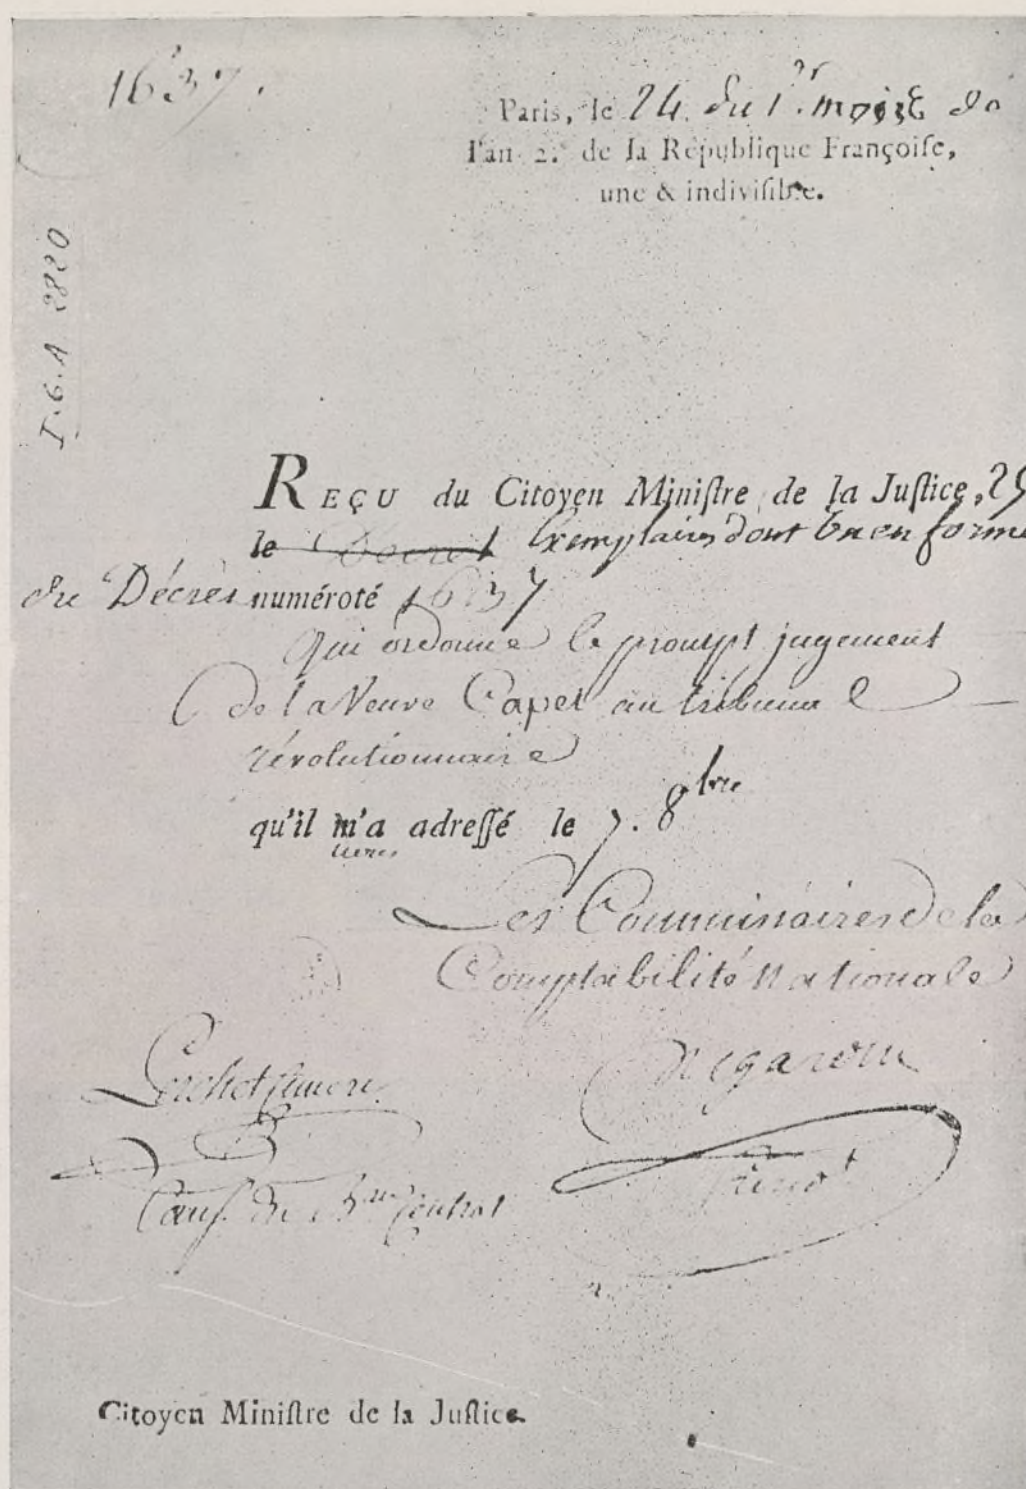 1637.
Paris, le 24 du 1.er mois de
l'an 2.e de la République Françoiſe,
une & indiviſible.
I.6.A 2820
REÇU du Citoyen Miniſtre de la Juſtice, 25
le Décret Exemplaires dont Un en forme
du Décret numéroté 1637
qui ordonne le prompt jugement
De la Veuve Capet au tribunal
révolutionnaire
qu'il m'a adreſſé le 7. 8bre
Les Commissaires de la
Comptabilité Nationale
Citoyen Miniſtre de la Juſtice.